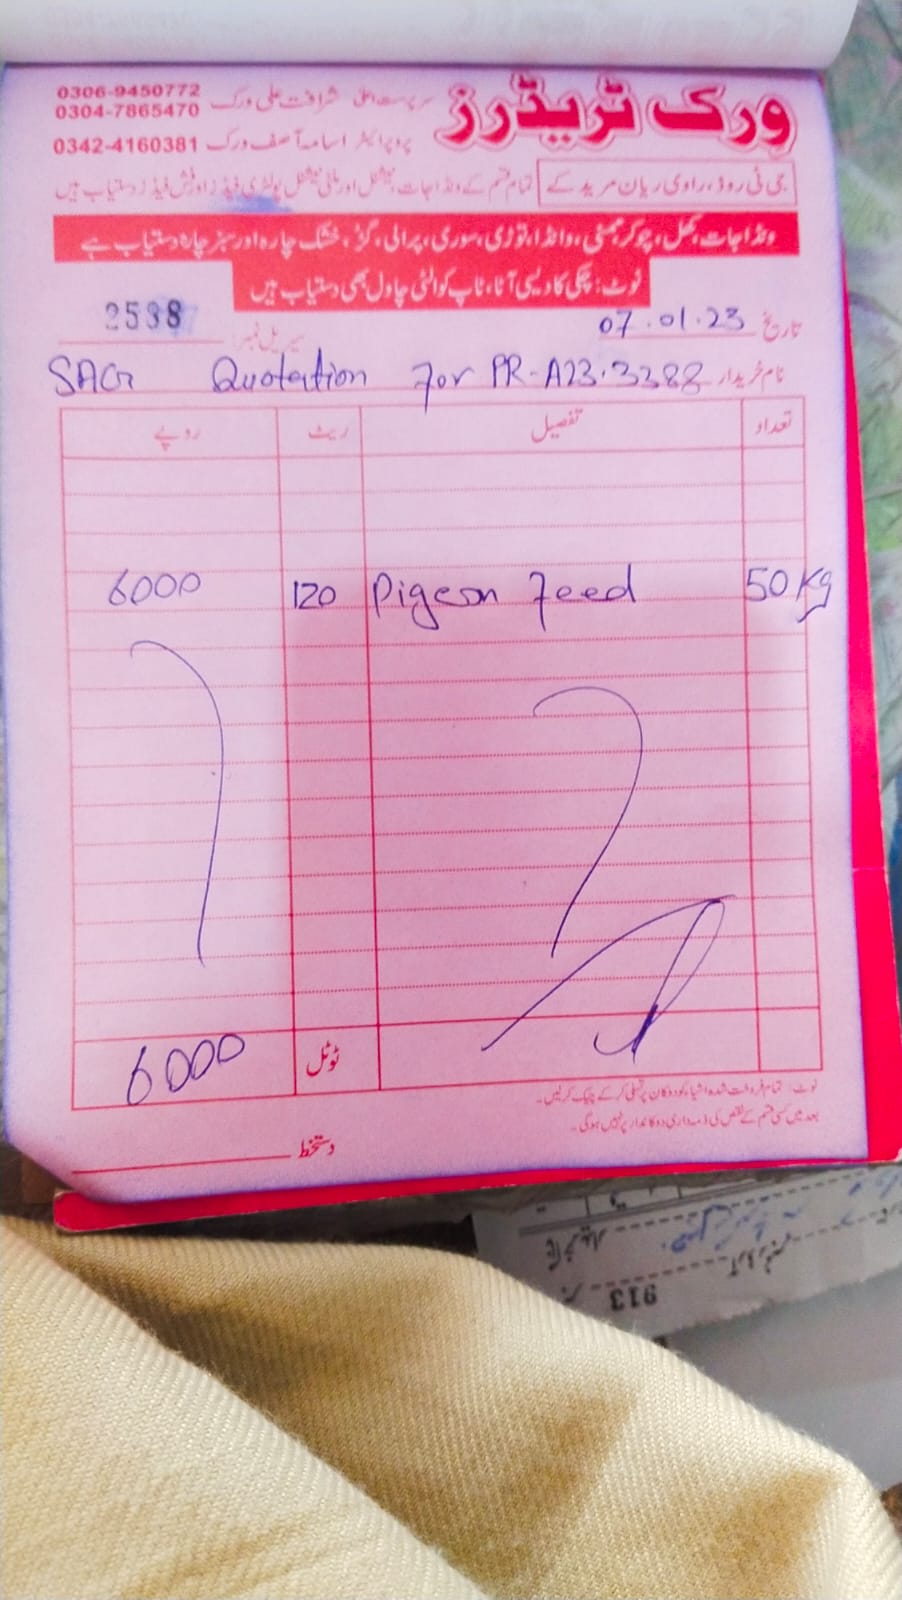 ورک ٹریڈرز
سرپرست اعلیٰ شرافت علی ورک 0306-9450772
0304-7865470
پروپرائیٹر اسامہ آصف ورک 0342-4160381
جی ٹی روڈ، راوی ریان مریدکے
تمام قسم کے ونڈا جات، نیشنل اور ملٹی نیشنل پولٹری فیڈز اور فش فیڈز دستیاب ہیں
ونڈا جات، کھل، چوکر، مکئی، دانڈا، توڑی، سوری، پرالی، گڑ، خشک چارہ اور سبز چارہ دستیاب ہے
نوٹ: چکی کا دیسی آٹا، ٹاپ کوالٹی چاول بھی دستیاب ہیں
تاریخ 07.01.23 سیریل نمبر 2538
نام خریدار SAGr Quotation For PR-A23.3288
تعداد تفصیل ریٹ روپے
50 Kg Pigeon Feed 120 6000
ٹوٹل 6000
نوٹ: تمام فروخت شدہ اشیاء کو دوکان پر تسلی کر کے چیک کر لیں۔
بعد میں کسی قسم کے نقص کی ذمہ داری دوکاندار پر نہیں ہوگی۔
دستخط
913